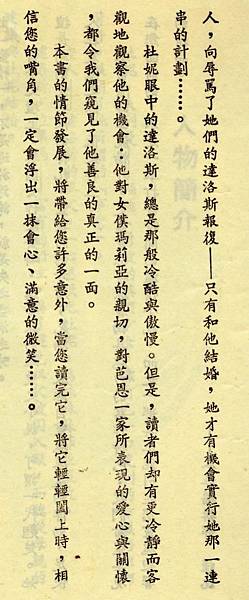 人，向辱罵了她們的達洛斯報復——只有和他結婚，她才有機會實行她那一連
串的計劃……。
杜妮眼中的達洛斯，總是那般冷酷與傲慢。但是，讀者們却有更冷靜而客
觀地觀察他的機會：他對女僕瑪莉亞的親切，對芭恩一家所表現的愛心與關懷
，都令我們窺見了他善良的真正的一面。
本書的情節發展，將帶給您許多意外，當您讀完它，將它輕輕闔上時，相
信您的嘴角，一定會浮出一抹會心、滿意的微笑……。